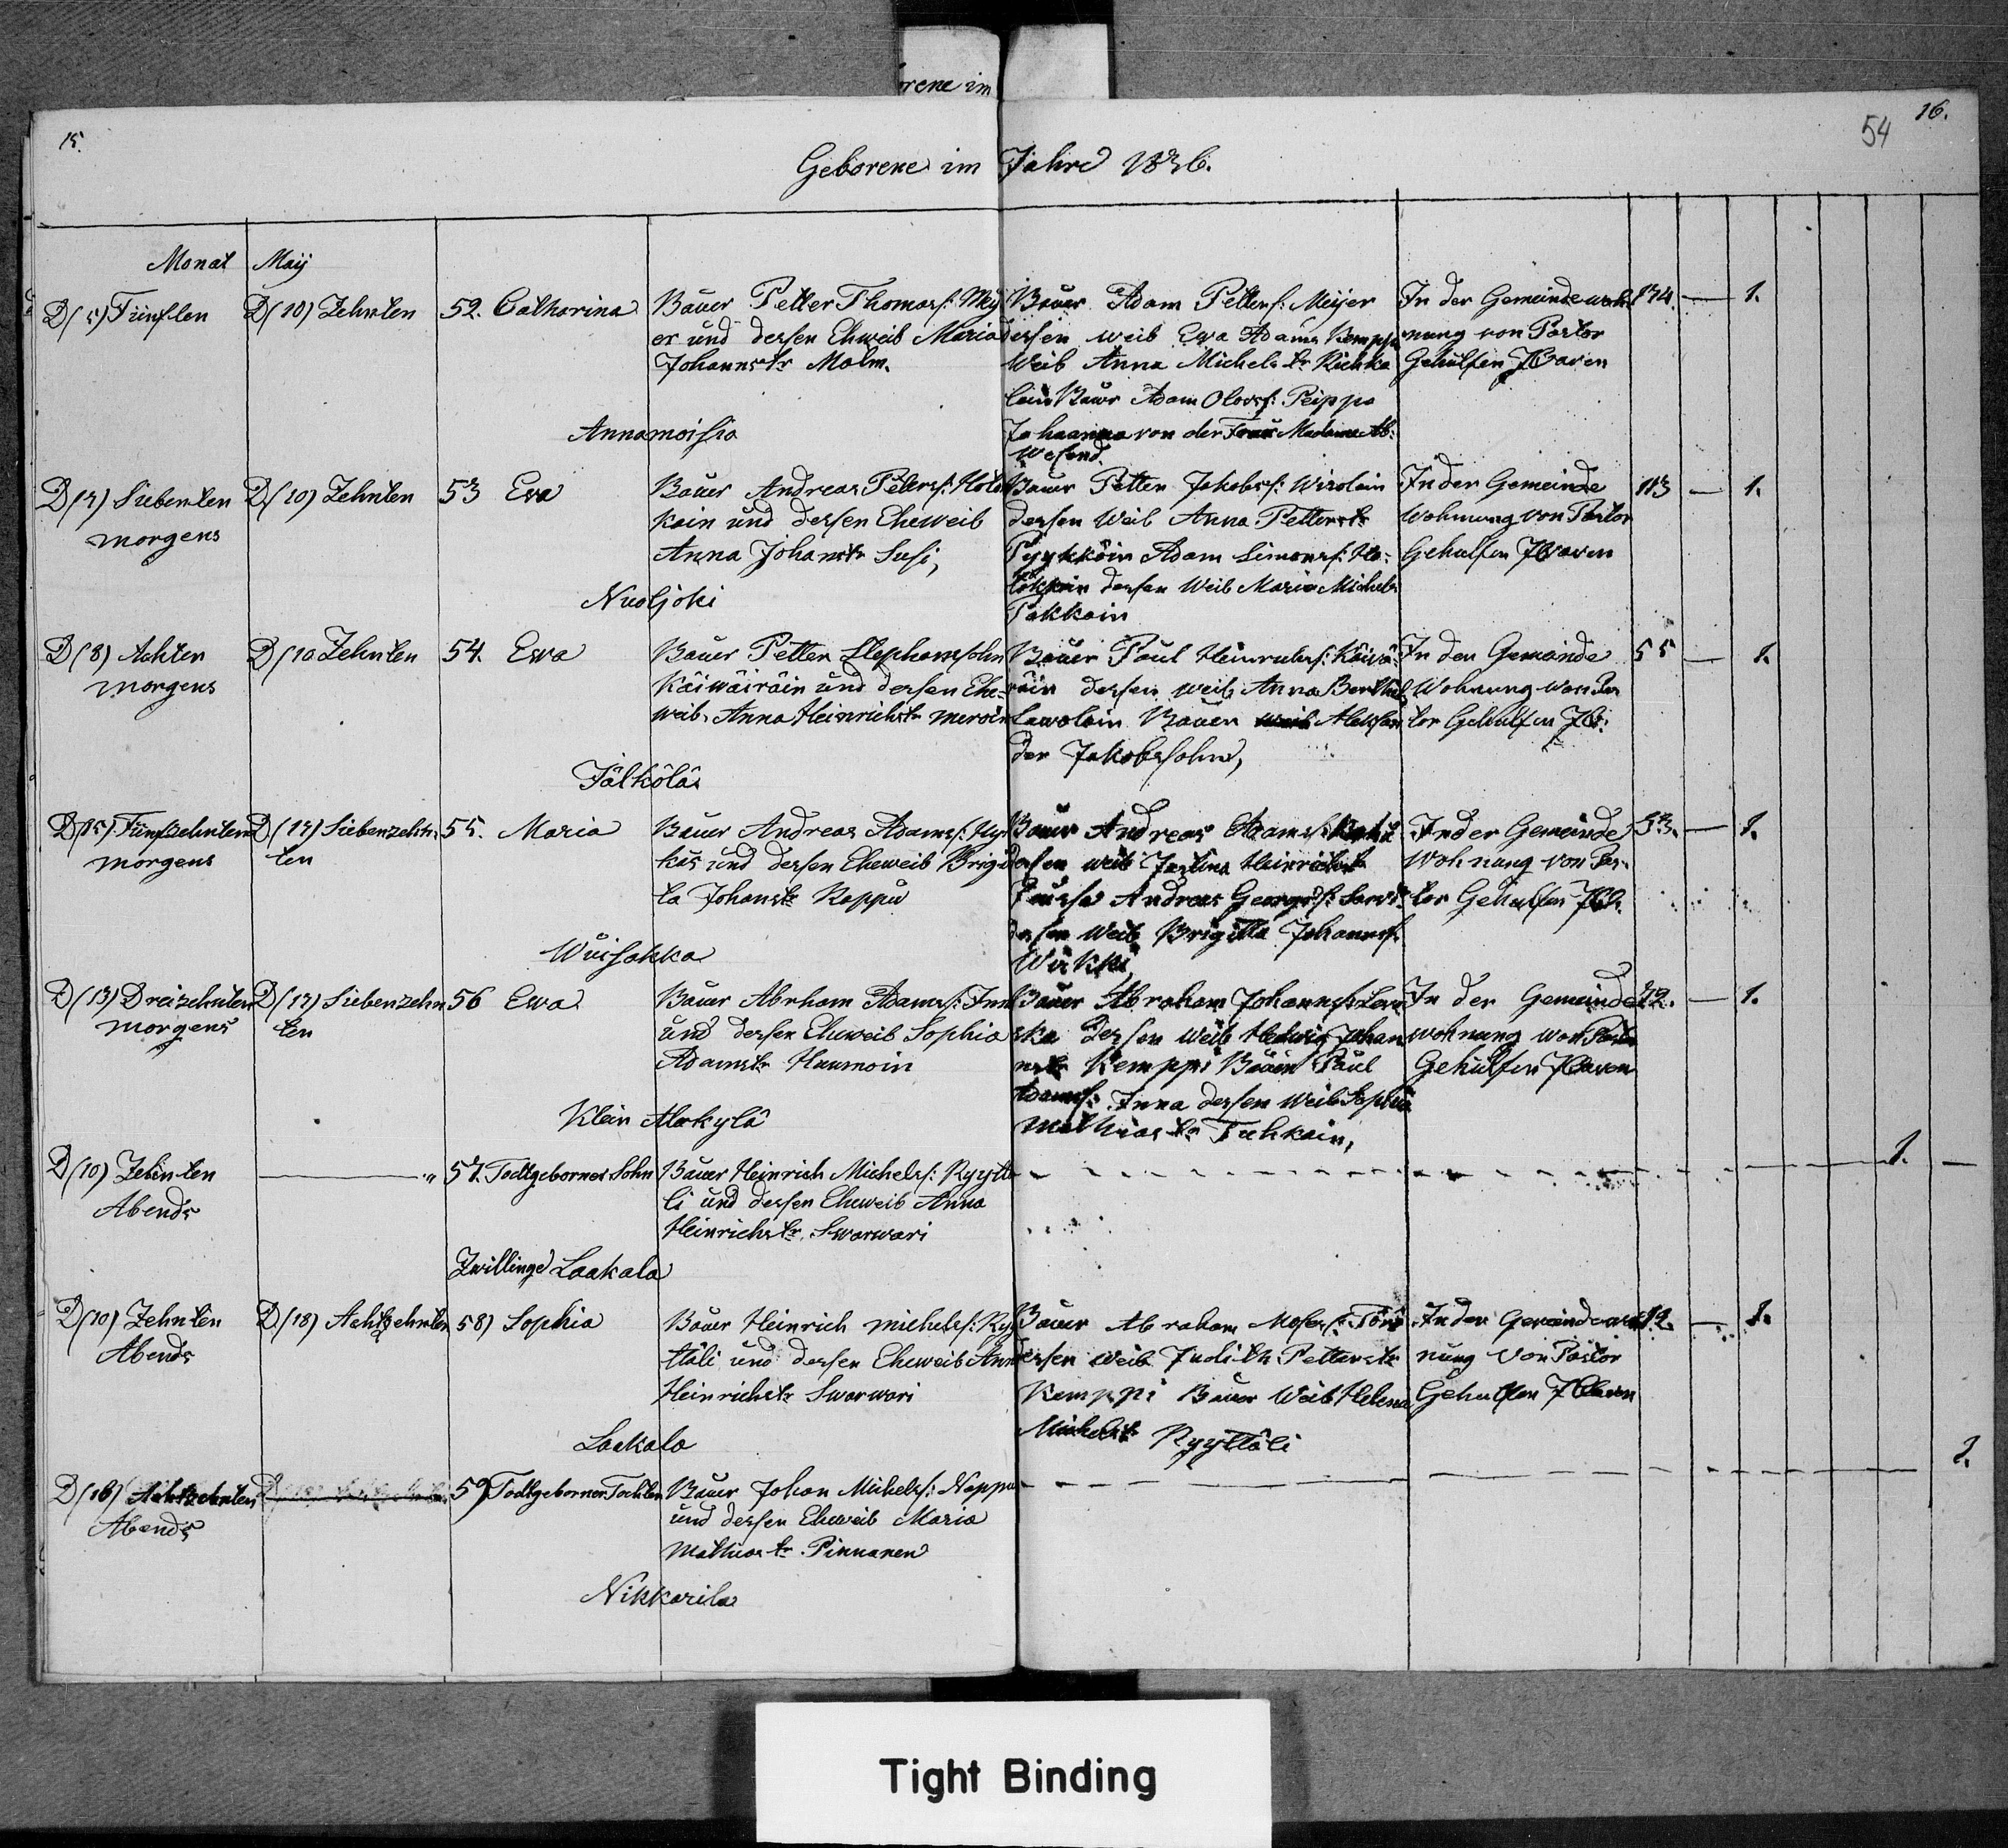 rene im
15.
54
16.
Geborene im Jahre 1836.
Monat Maij
D (5) Fünften
D (10) Zehnten
52. Catharina
Bauer Petter Thomass: Meij
er und dessen Eheweib Maria
Johanstr Malm.
Annamoisia
Bauer Adam Petters: Meijer
dessen weib Ewa Adams Kemppi
Weib Anna Michels tr
Bauer Adam Olovs: Peippo
Johanna von der Madame Ab:
wesend
In der Gemeinde woh
nung von Pastor
Gehülfen
174. — 1.
D (7) Siebenten
morgens
D (10) Zehnten
53 Eva
Bauer Andreas Petters:
kain und dessen Eheweib
Anna Johanstr Susi,
Nuoljoki
Bauer Petter Jakobss: Wirolain
dessen Weib Anna Petterstr
Pyykköin Adam Simons: Ho-
dessen Weib Maria Michels
Pakkain
In der Gemeinde
Wohnung von Pastor
Gehulfen
113 — 1.
D (8) Achten
morgens
D (10 Zehnten
54. Ewa
Bauer Petter Stephansohn
Käiwäräin und dessen Ehe-
weib Anna Heinrichstr
Jälkölä
Bauer Paul Heinrichs: Käiwä-
räin dessen weib Anna
Sawolain Bauer Aleksan
der Jakobssohn,
In der Gemeinde
Wohnung von Pas
tor Gehulfen
55 — 1.
D (15) Fünfzehnten
morgens
D (17) Siebenzehn-
ten
55. Maria
Bauer Andreas Adams:
käs und dessen Eheweib Brigi
ta Johanstr Kappu
Wuisakka
Bauer Andreas Adams:
dessen weib Justina Heinrichstr
Andreas Georgs:
dessen Weib Brigitta Johanns:
Wirkki
In der Gemeinde
Wohnung von Pas-
tor Gehulfen
53. — 1.
D (13) Dreizehnten
morgens
D (17) Siebenzehn
ten
56 Ewa
Bauer Abrham Adams:
und dessen Eheweib Sophia
Adamstr Haumoin
Klein Alakylä
Bauer Abraham Johanns:
ska dessen Weib Hedwig Johan
nstr Kemppi Bauer Paul
Adams: Inna dessen Weib Sophia
Mathias tr Tuhkain,
In der Gemeinde
wohnung von Pastor
Gehülfen
72. — 1.
D (10) Zehnten
Abends
57. Todtgeborner Sohn
Bauer Heinrich Michels: Ryyttä
li und dessen Eheweib Anna
Heinrichstr Sworwari
Zwillinge Laakala
1. —
D (10) Zehnten
Abends
D (18) Achtzehnten
58) Sophia
Bauer Heinrich Michels: Ryy
ttäli und dessen Eheweib Anna
Heinrichstr Sworwari
Laakala
Bauer Abraham Moses:
dessen weib Judith Petterstr
Kemppi Bauer Weib Helena
Michelstr Ryyttäli
In der Gemeinde woh
nung von Pastor
Gehulfen
— 1.
D (16)
Abends
59. Todtgeborner Tochter
Bauer Johan Michels: Nappu
und dessen Eheweib Maria
Mathias tr Pinnanen
Nikkarila
1.
Tight Binding